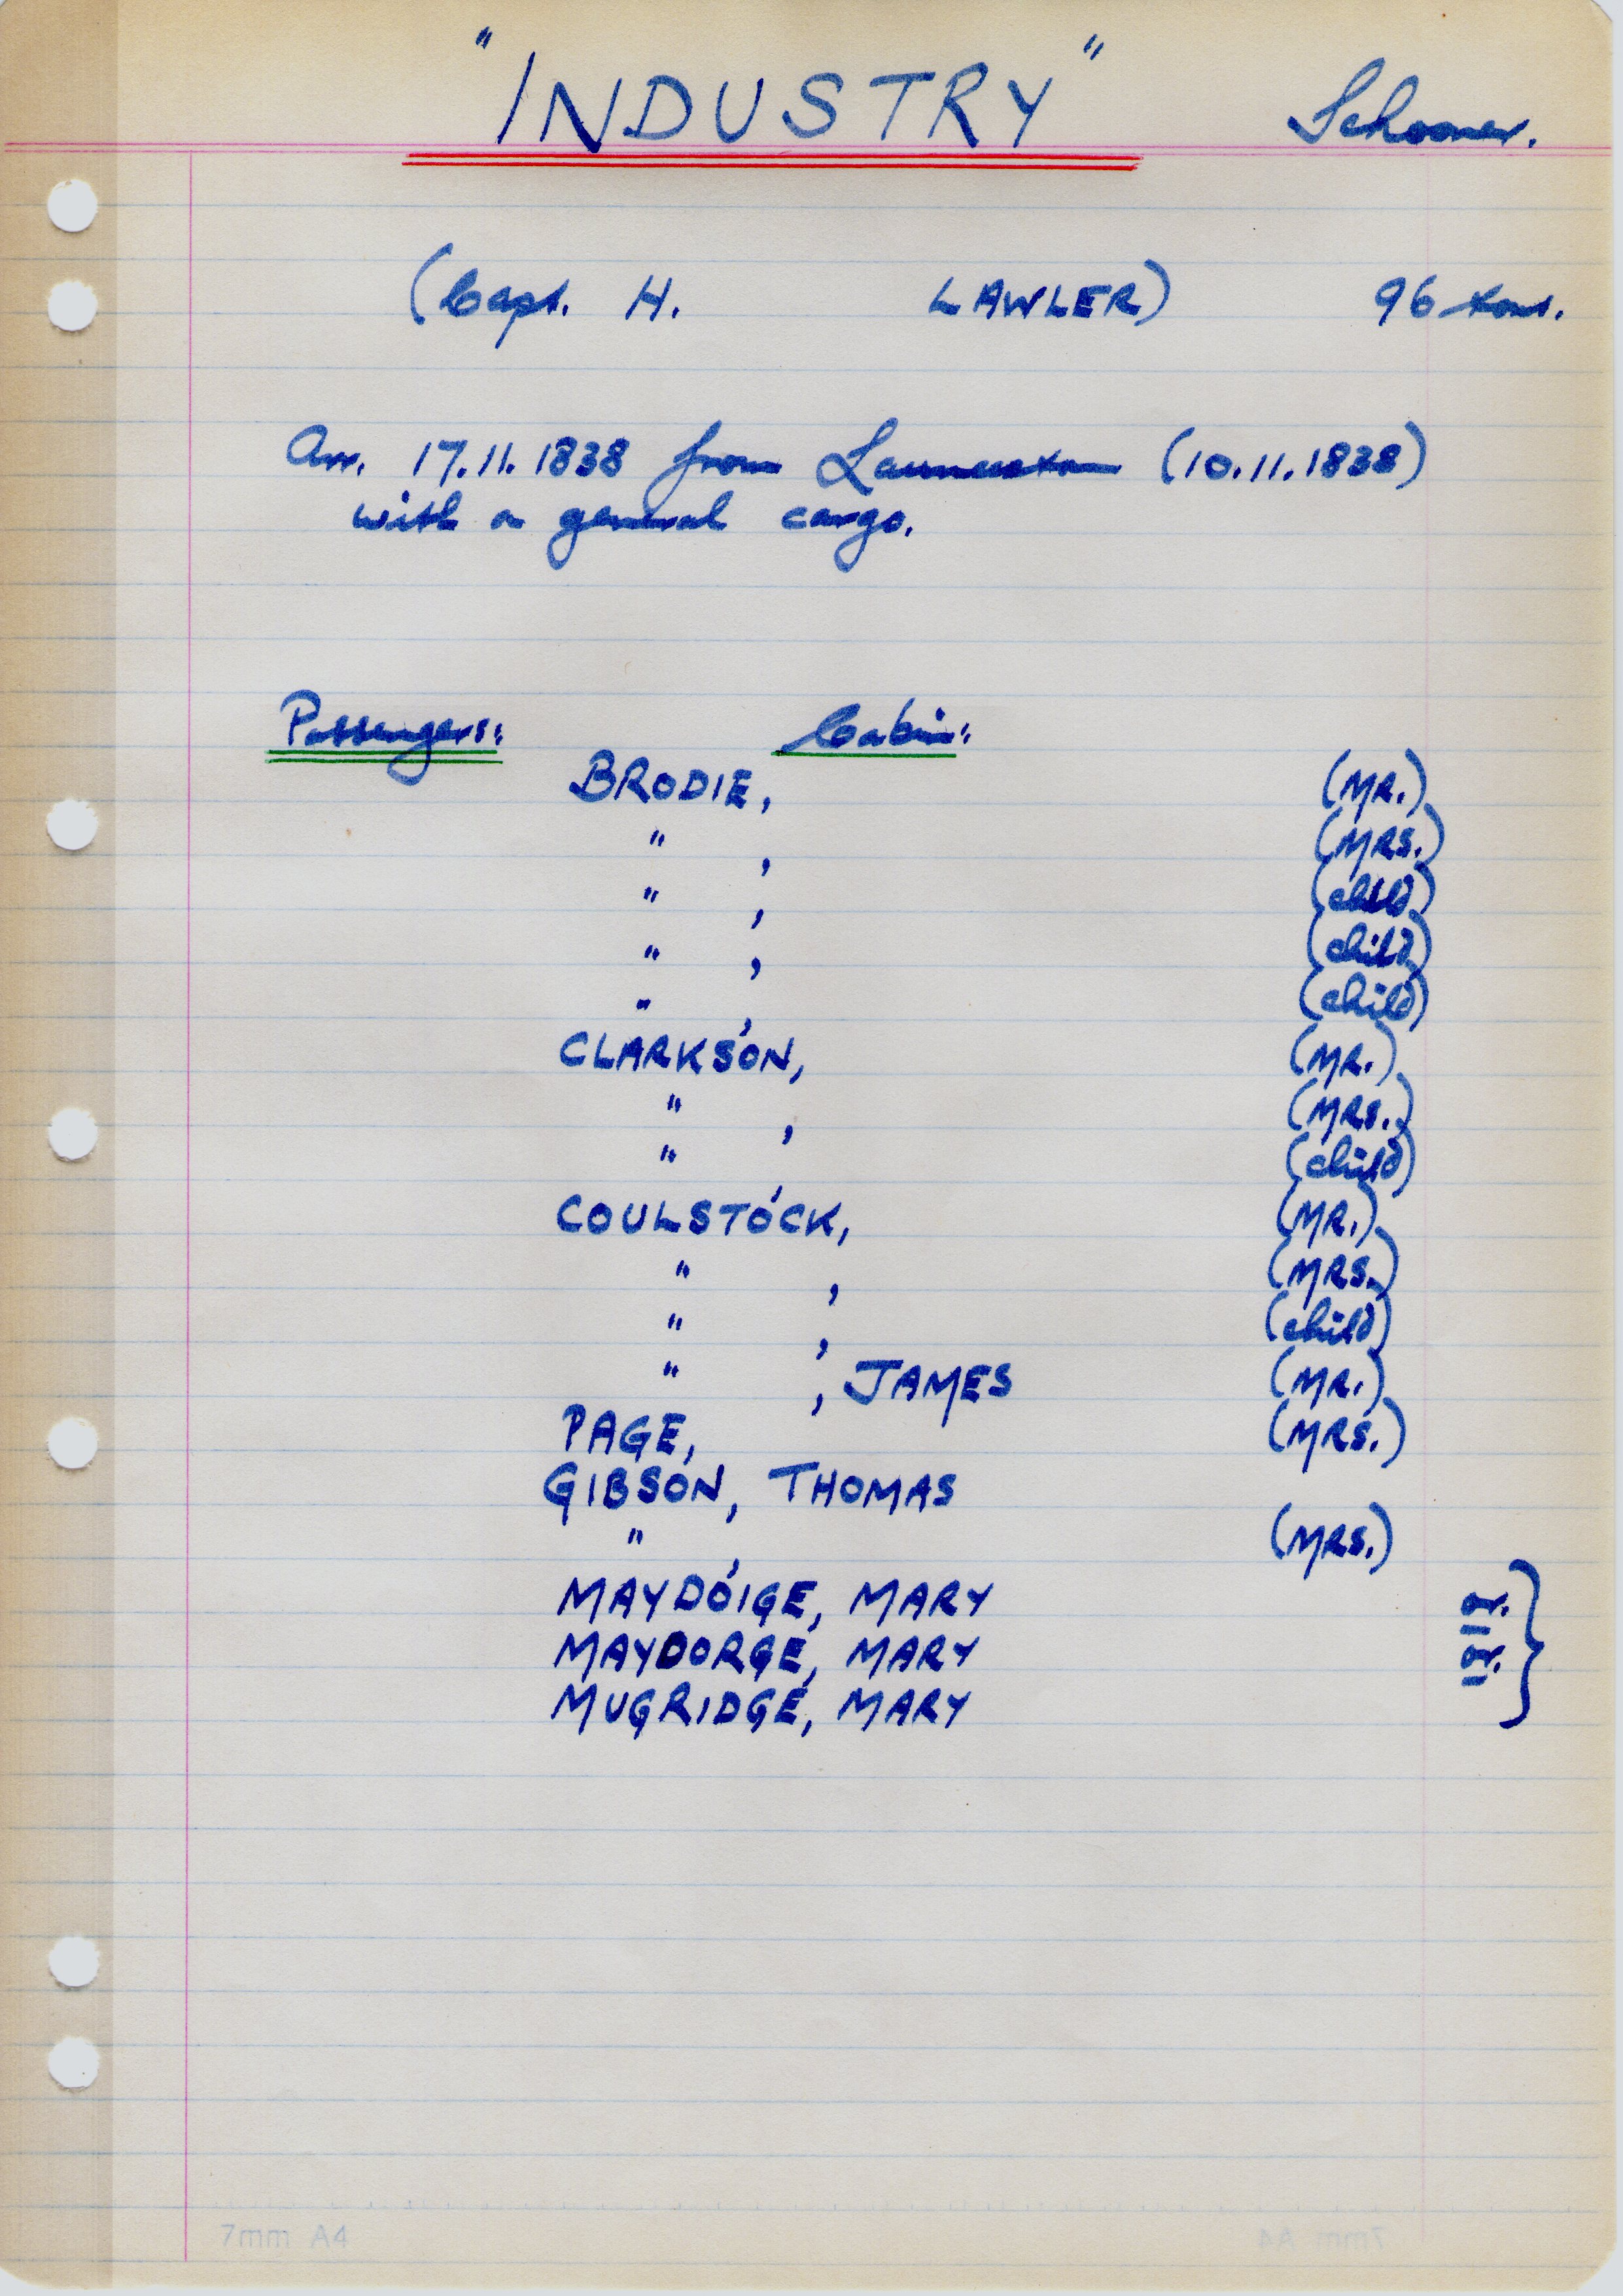 "INDUSTRY" Schooner.
(Capt. H. LAWLER) 96 tons.
Arr. 17.11.1838 from Launceston (10.11.1838)
with a general cargo.
Passengers: Cabin:
BRODIE, (MR.)
" , (MRS.)
" , (child)
" , (child)
" , (child)
CLARKSON, (MR.)
" , (MRS.)
" , (child)
COULSTOCK, (MR.)
" , (MRS.)
" , (child)
" , JAMES (MR.)
PAGE, (MRS.)
GIBSON, THOMAS
" , (MRS.)
MAYDOIGE, MARY or.
MAYDORGE, MARY or.
MUGRIDGE, MARY
7mm A4